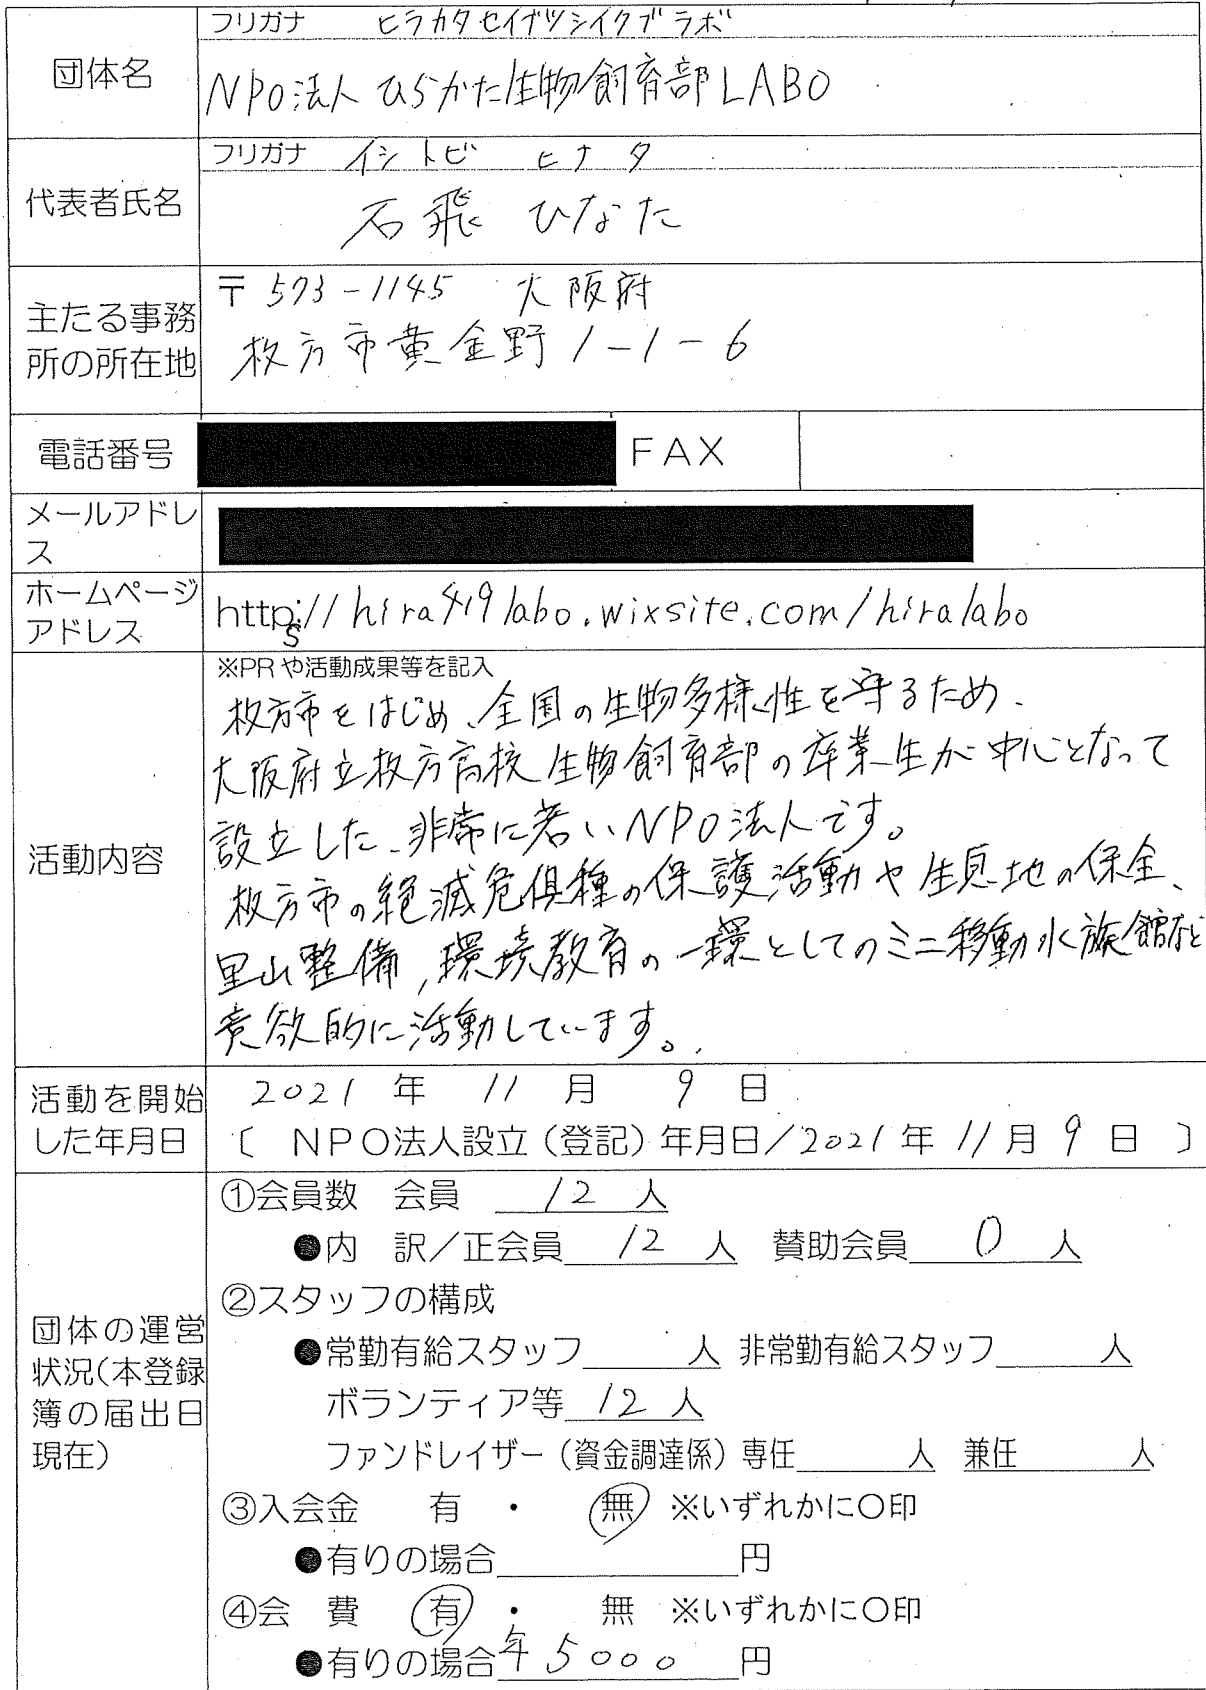 フリガナ ヒラカタセイブツシイクブラボ
団体名
NPO法人 ひらかた生物飼育部LABO
フリガナ イシトビ ヒナタ
代表者氏名
石飛 ひなた
主たる事務所の所在地
〒573-1145 大阪府
枚方市黄金野1-1-6
電話番号 FAX
メールアドレス
ホームページアドレス
https://hira419labo.wixsite.com/hiralabo
活動内容
※PRや活動成果等を記入
枚方市をはじめ、全国の生物多様性を守るため、
大阪府立枚方高校生物飼育部の卒業生が中心となって
設立した、非常に若いNPO法人です。
枚方市の絶滅危惧種の保護活動や生息地の保全、
里山整備,環境教育の一環としてのミニ移動水族館など
意欲的に活動しています。
活動を開始した年月日
2021 年 11 月 9 日
〔 NPO法人設立(登記)年月日/2021年 11月 9 日 〕
団体の運営状況(本登録簿の届出日現在)
①会員数 会員 12 人
●内 訳/正会員 12 人 賛助会員 0 人
②スタッフの構成
●常勤有給スタッフ 人 非常勤有給スタッフ 人
ボランティア等 12 人
ファンドレイザー(資金調達係)専任 人 兼任 人
③入会金 有 ・ 無 ※いずれかに○印
●有りの場合 円
④会 費 有 ・ 無 ※いずれかに○印
●有りの場合 年 5000 円